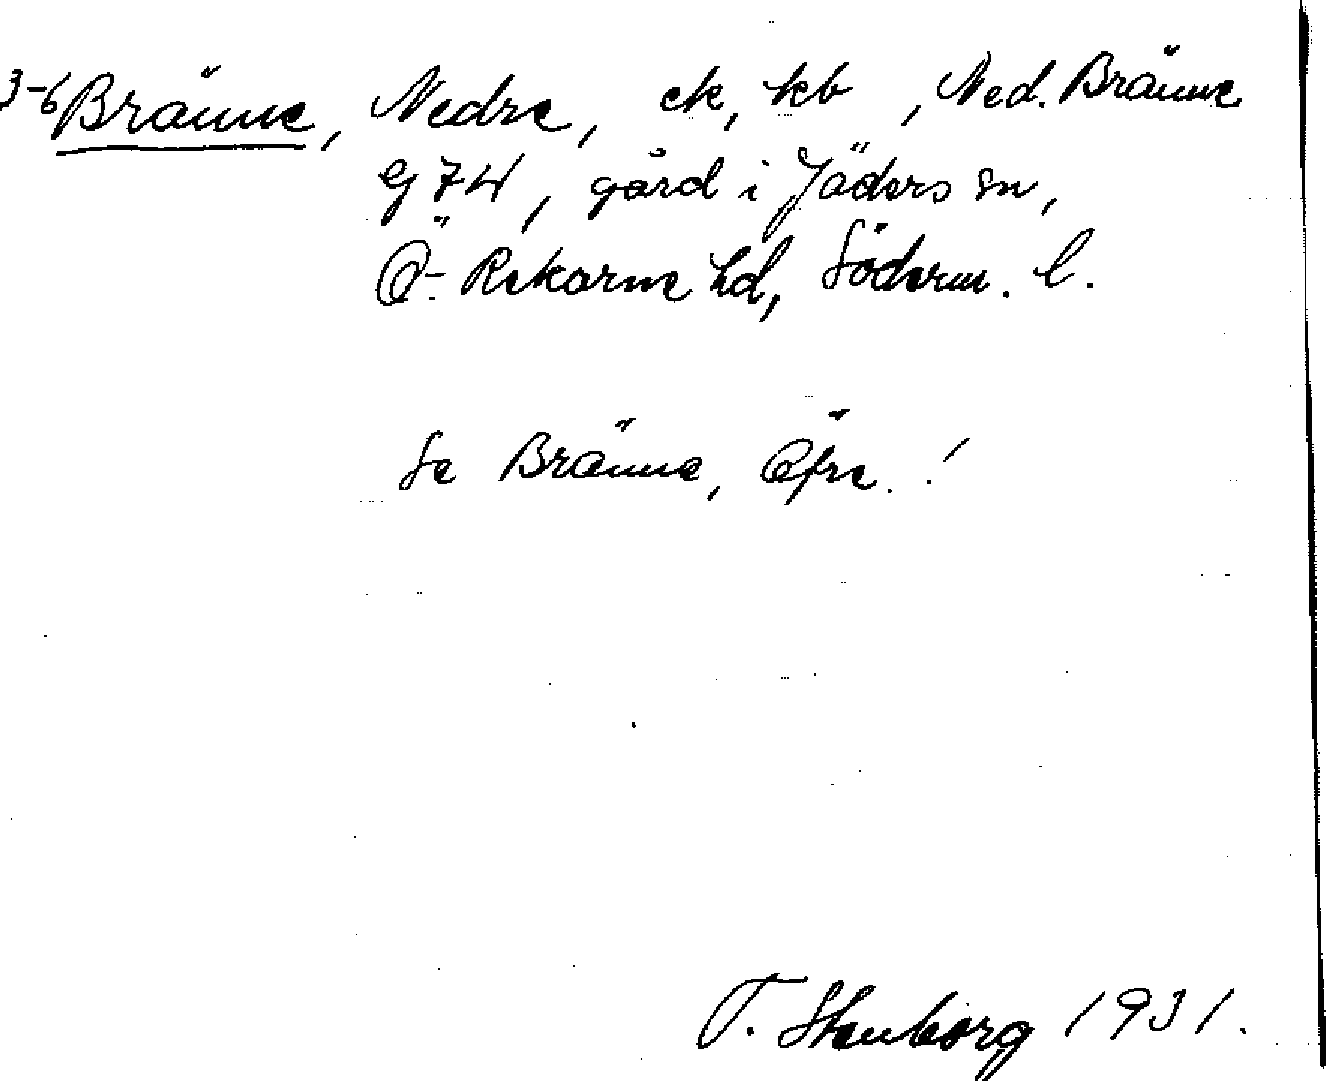 3-6 Bränne, Nedre, ek, kb, Ned. Bränne
G 74, gård i Jäders sn,
Ö. Rekarne hd, Söderm. l.
Se Bränne, Öfre.!
T. Stenborg 1931.